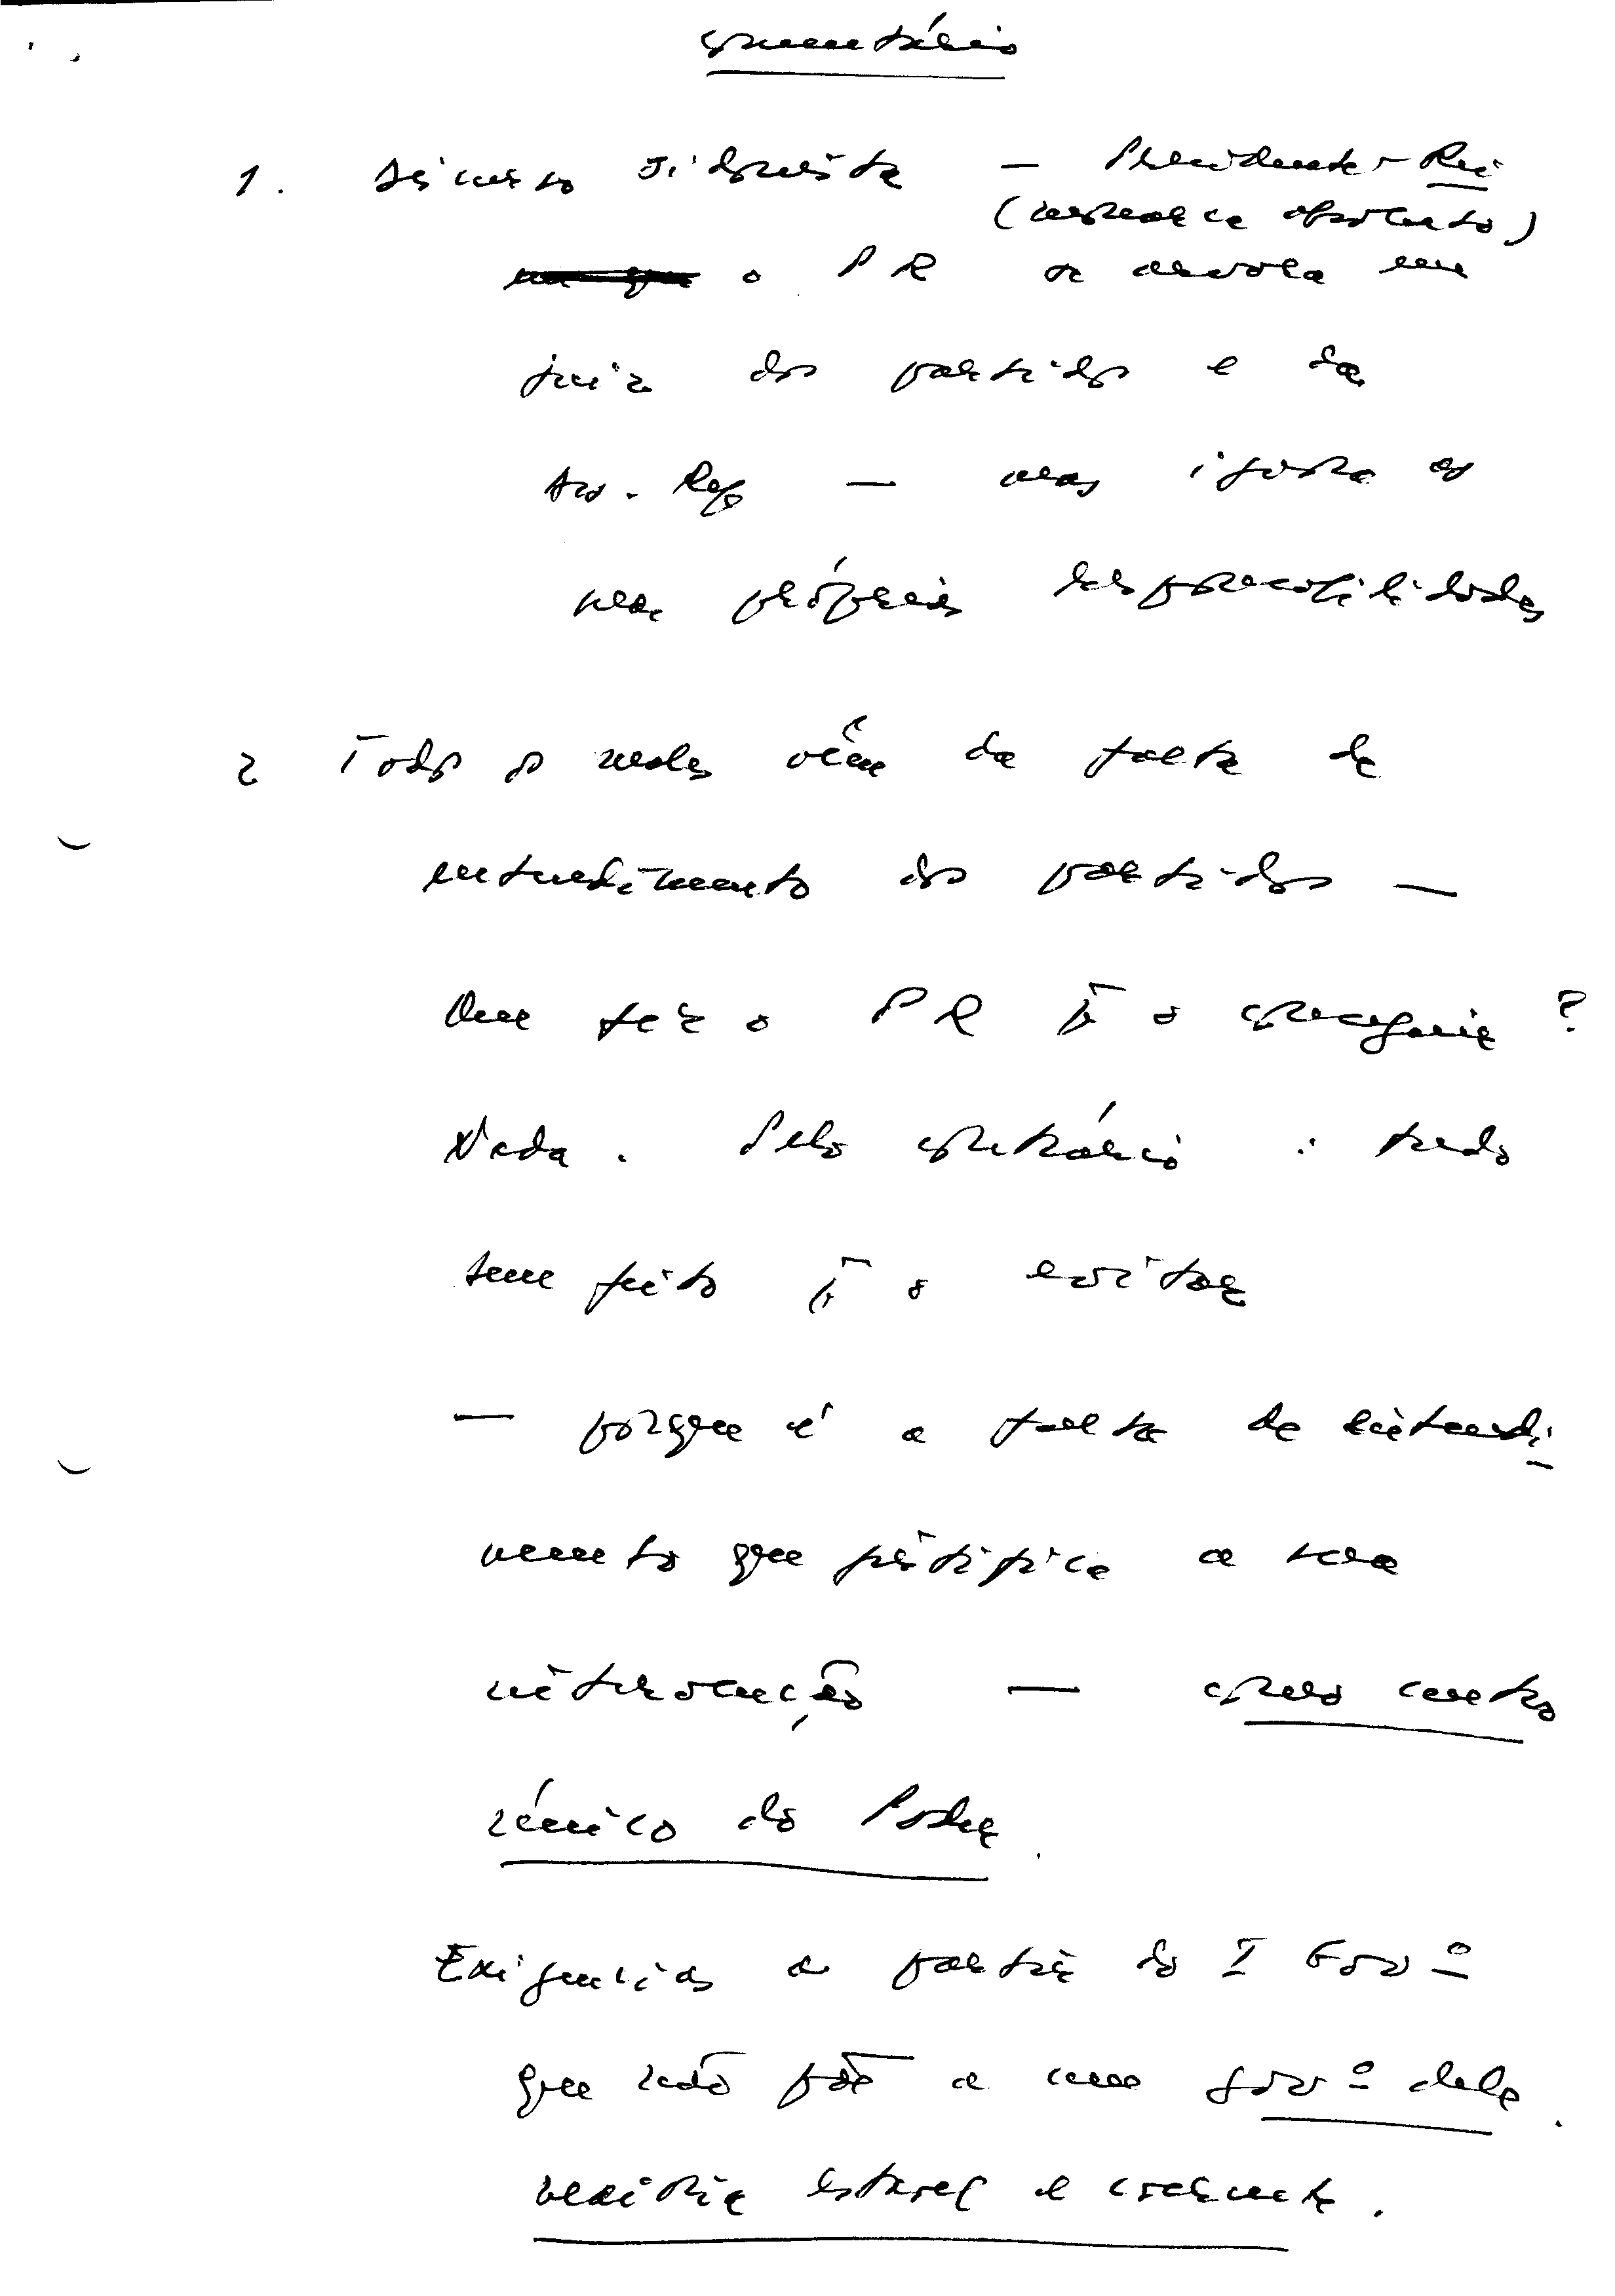 comentário
1. discurso sidonista — Presidente-Rei
(monarca absoluto)
o PR se arvora em
juiz dos partidos e da
As. Rep — mas ignora as
suas próprias responsabilidades
2 Todos os males vêm da falta de
entendimento dos partidos —
Que fez o PR pª o conseguir?
Nada. Pelo contrário: tudo
tem feito pª o evitar
— porque é a falta de entendi
mento que justifica a sua
intervenção — como centro
único do Poder.
Exigências a partir do I Govº
que não põe a um govº dele.
maioria estável e coerente.